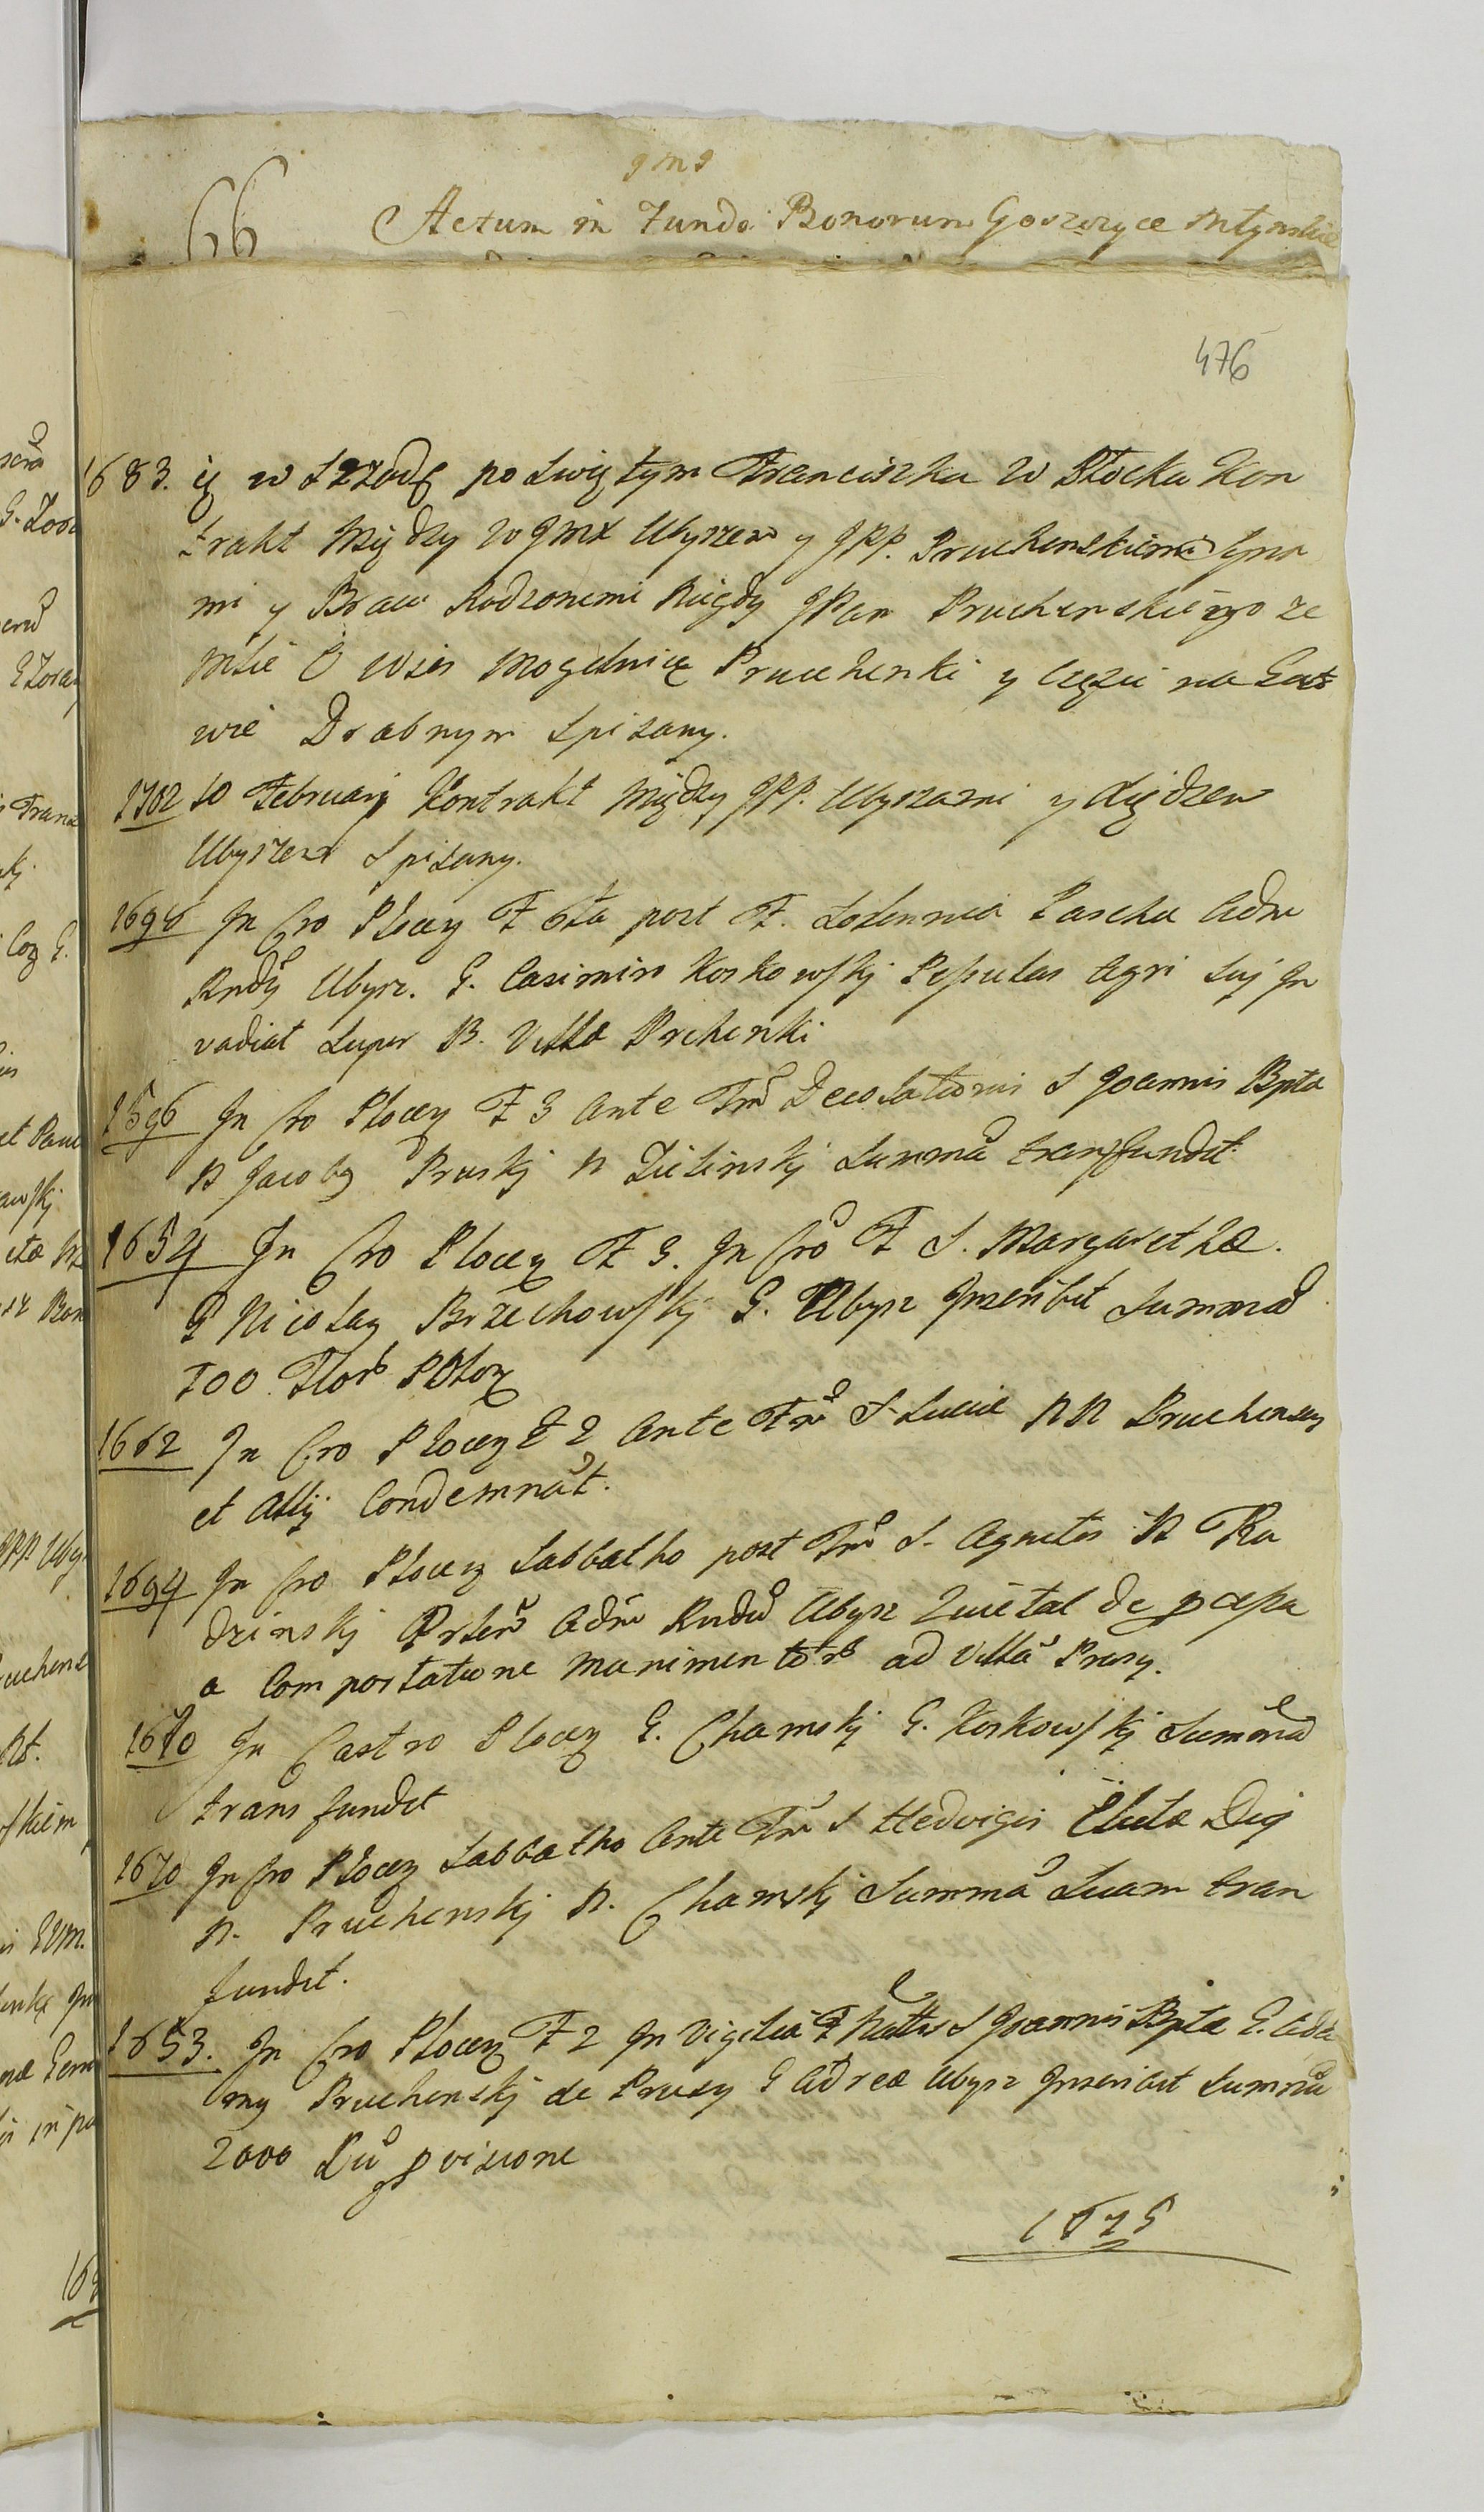 gmg
66 Actum in Fundo Bonorum Goszczyce Młynskie
476
1683. ię w Srzodę po Swiętym Franciszku w Płocku Kon
trakt Między WJMX Ubyszem y JPP. Pruchenskiemi Syna
mi y Braw Rodzonemi Niegdy JPan Pruchenskiego ze
msie O wies Mogelnicę Pruchenki y Częsci na
wie Drabnym Spisany.
1702 10 Februarij Kontrakt Między JPP. Ubyszami y Xiędzem
Ubyszem Spisany.
1696 In Cro Plocen F 6ta post F. Solennia Pascha Adm
Rndo Ubysz. G. Casimiro Koskowskij Agri Suj In
vadiat Super B. Villa Prchenki
1596 In Cro Plocen F 3 Ante Fm Decolationis S Joannis Bpta
N Jacoby Pruskj N Zielinskj Summa transfundit
1654 In Cro Plocen F 3. In Cro F S. Margarethæ.
G Nicolay Brzechowskj G. Ubysz Inscribit Summa
700 Flor Plon
1662 In Cro Plocen F 2 Ante Fm S Luciæ NN Pruchensy
et Allij Condemnat.
1694 In Cro Plocen Sabbatho post Fm S. Agnetis N Ra
dzinskj Adm Rndu Ubysz Quietat de
a Comportatione Munimentor ad Villa Prusy.
1670 In Castro Plocen G. Chamskj G. Koskowskj Summa
transfundit
1670 In Cro Plocen Sabbatho Ante Fm S Hedvigis Electæ Dei
N. Pruchenskj N. Chamskj Summa Suam tran
fundit.
1653. In Cro Plocen F 2 In Vigilia F Nattis S Joannis Bpta G. Ada
my Pruchenskj de Prusy G Adrea Ubysz Inscribit Summa
2000 Su pvisione
1675